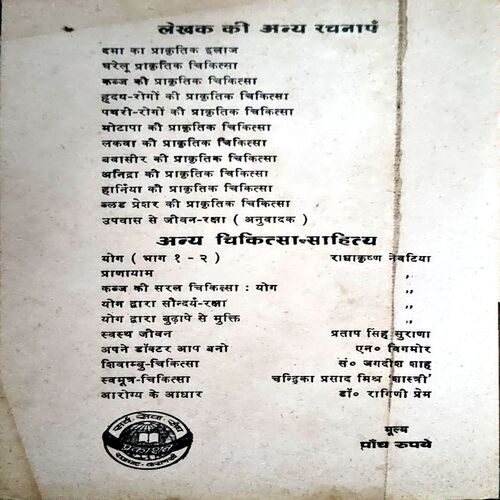 लेखक की अन्य रचनाएँ
दमा का प्राकृतिक इलाज
घरेलू प्राकृतिक चिकित्सा
कब्ज की प्राकृतिक चिकित्सा
हृदय-रोगों की प्राकृतिक चिकित्सा
पथरी-रोगों की प्राकृतिक चिकित्सा
मोटापा की प्राकृतिक चिकित्सा
लकवा की प्राकृतिक चिकित्सा
बवासीर की प्राकृतिक चिकित्सा
अनिद्रा की प्राकृतिक चिकित्सा
हार्निया की प्राकृतिक चिकित्सा
ब्लड प्रेशर की प्राकृतिक चिकित्सा
उपवास से जीवन-रक्षा ( अनुवादक )
अन्य चिकित्सा-साहित्य
योग ( भाग १ - २ ) राधाकृष्ण नेवटिया
प्राणायाम ,,
कब्ज की सरल चिकित्सा : योग ,,
योग द्वारा सौन्दर्य-रक्षा ,,
योग द्वारा बुढ़ापे से मुक्ति ,,
स्वस्थ जीवन प्रताप सिंह सुराणा
अपने डॉक्टर आप बनो एन० विगमोर
शिवाम्बु-चिकित्सा सं० जगदीश शाह
स्वमूत्र-चिकित्सा चन्द्रिका प्रसाद मिश्र 'शास्त्री'
आरोग्य के आधार डॉ० रागिणी प्रेम
सर्व सेवा संघ
प्रकाशन
राजघाट-वाराणसी
मूल्य
पाँच रुपये